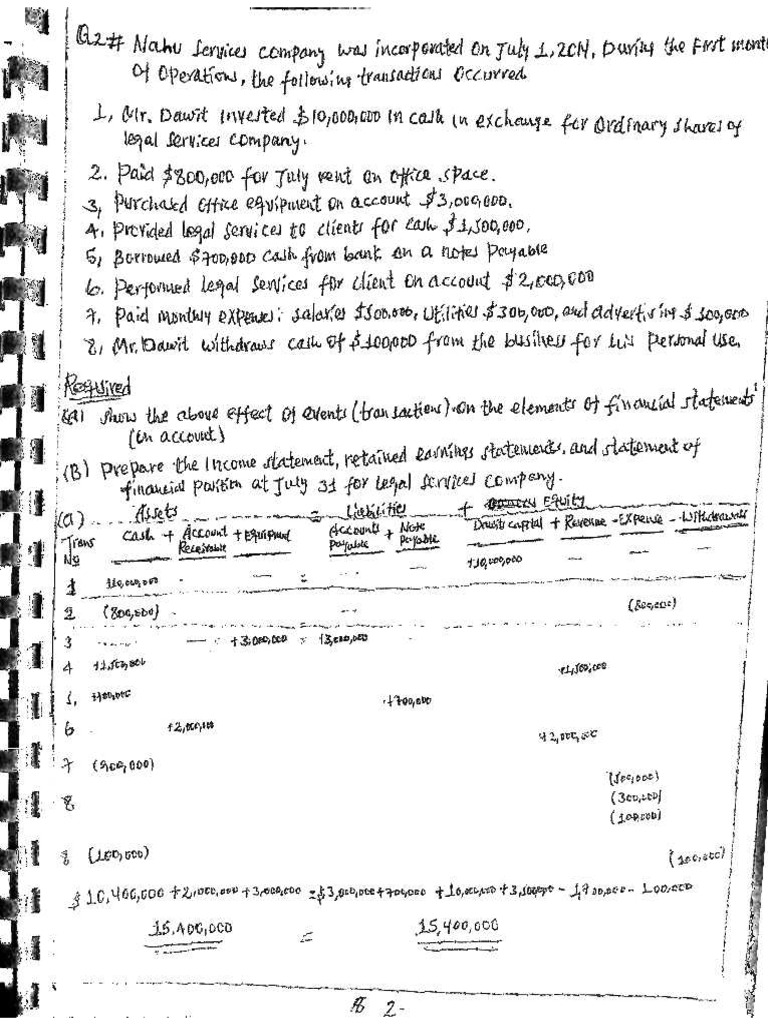 Q2# Nahu Services Company was incorporated on July 1, 2014. During the First month
of Operations, the following transactions Occurred
1, Mr. Dawit Invested $10,000,000 in cash in exchange for Ordinary shares of
legal Services Company.
2. Paid $800,000 for July rent on office space.
3, Purchased office equipment on account $3,000,000.
4, Provided legal services to clients for cash $1,500,000.
5, Borrowed $700,000 cash from bank on a notes Payable
6. Performed Legal Services for client on account $2,000,000
7, Paid monthly expenses: salaries $500,000, Utilities $300,000, and advertising $100,000
8, Mr. Dawit withdraws cash of $100,000 from the business for his Personal Use.
Required
(A) Show the above effect of events (transactions) on the elements of financial statements
(on account)
(B) Prepare the Income statement, retained earnings statements, and statement of
financial position at July 31 for Legal Services Company.
(a) Assets = Liabilities + Equity
Trans No Cash + Account Receivable + Equipment Accounts Payable + Note Payable Dawit Capital + Revenue - Expense - Withdrawals
1 +10,000,000 - — = - +10,000,000 — — —
2 (800,000) - -- (800,000)
3 — +3,000,000 = +3,000,000 -
4 +1,500,000 +1,500,000
5, +700,000 +700,000
6 +2,000,000 +2,000,000
7 (900,000) (500,000)
8 (300,000)
(100,000)
8 (100,000) (100,000)
$10,400,000 +2,000,000 +3,000,000 =$3,000,000+700,000 +10,000,000 +3,500,000 - 1,700,000 - 100,000
15,400,000 = 15,400,000
2-